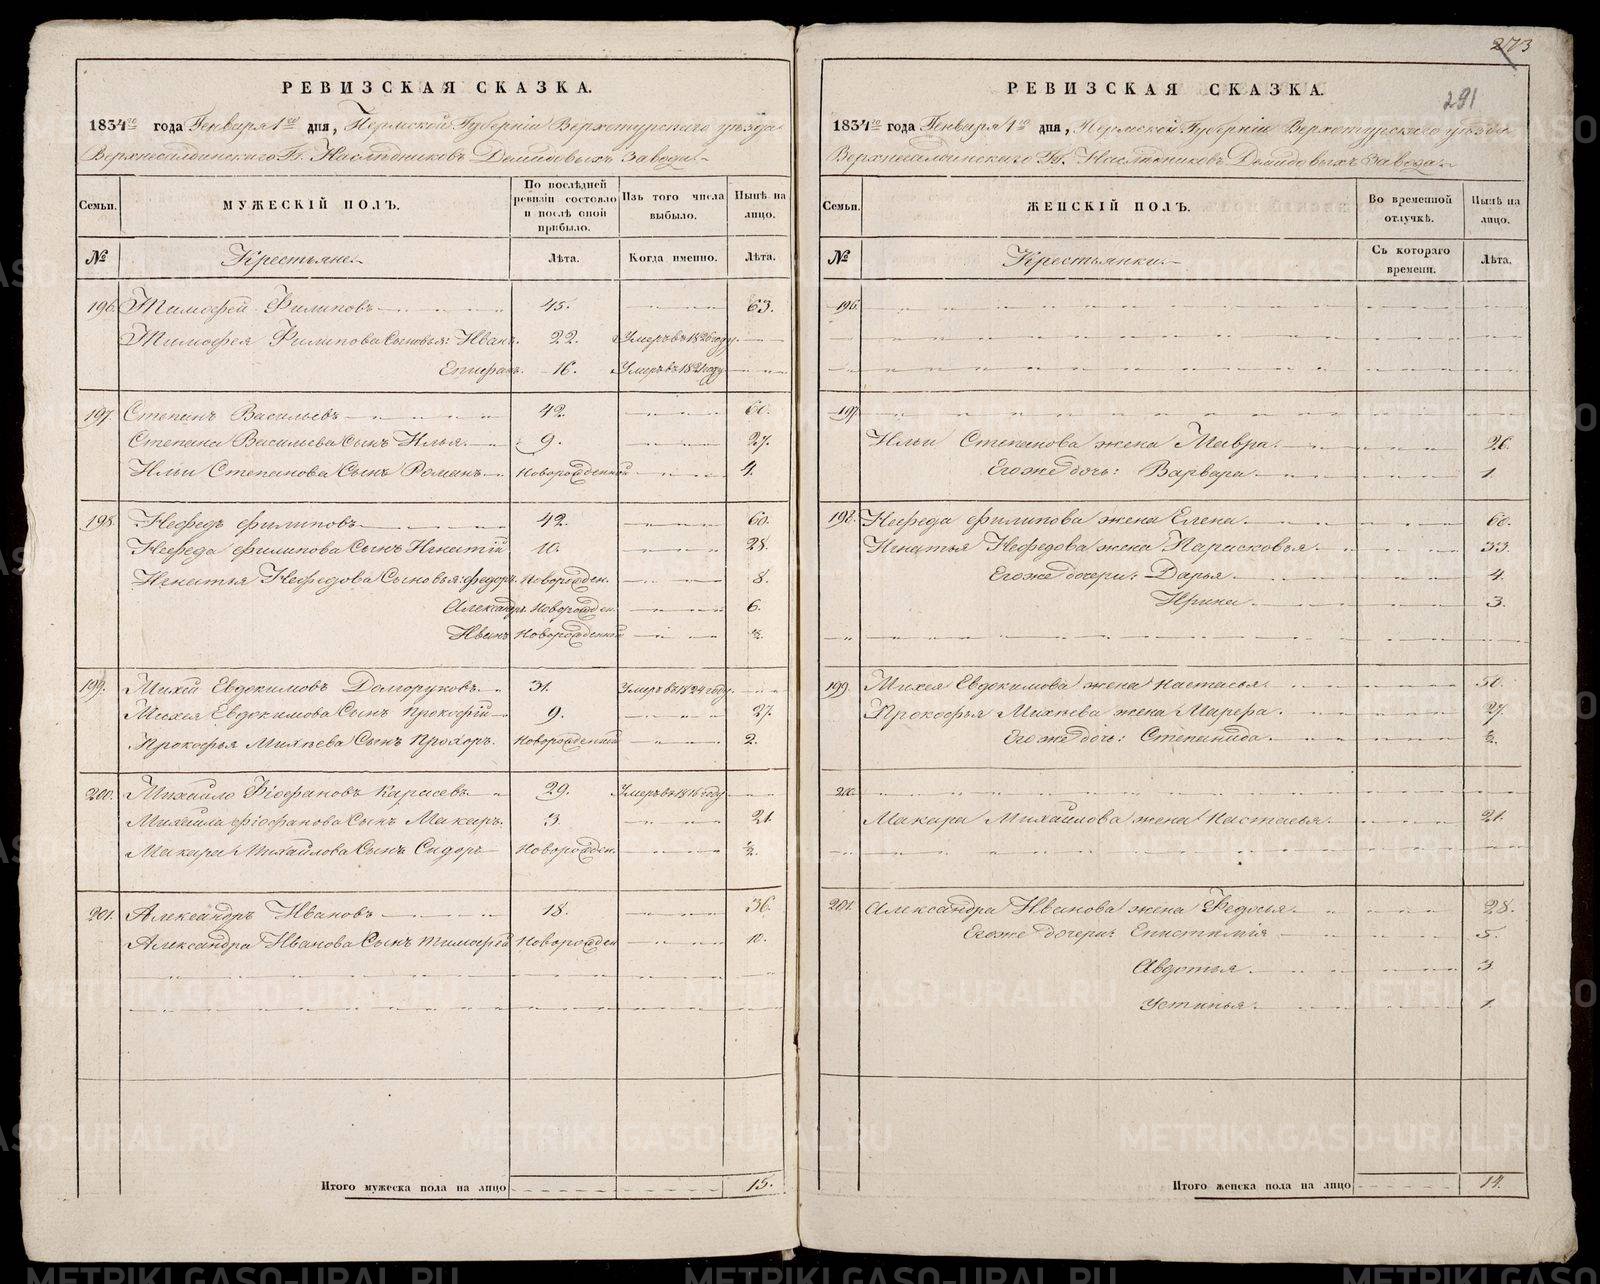 РЕВИЗСКАЯ СКАЗКА.
1834го года Генваря 1го дня, Пермской Губернiи Верхотурскаго уѣзда
Верхнесалдинскаго Гг. Наслѣдниковъ Демидовыхъ завода
Семьи. МУЖЕСКIЙ ПОЛЪ. По послѣдней ревизiи состояло и послѣ оной прибыло. Изъ того числа выбыло. Нынѣ на лицо.
№ Крестьяне. Лѣта. Когда именно. Лѣта.
196. Тимофей Филиповъ 45. 63.
Тимофея Филипова Сыновья: Иванъ. 22. Умеръ въ 1826 году.
Епифанъ. 16. Умеръ въ 1821 году
197. Степанъ Васильевъ 42. 60.
Степана Васильева Сынъ Илья. 9. 27.
Ильи Степанова Сынъ Романъ Новорожденной 4.
198. Нефедъ Филиповъ 42. 60.
Нефеда Филипова Сынъ Игнатiй 10. 28.
Игнатья Нефедова Сыновья: Федоръ. Новорожден. 8.
Александръ. Новорожден. 6.
Иванъ Новорожденной ½
199. Михей Евдокимовъ Долгоруковъ. 31. Умеръ въ 1824 году.
Михея Евдокимова Сынъ Прокофiй 9. 27.
Прокофья Михѣева Сынъ Прохоръ. Новорожденной 2.
200. Михайло Фiофановъ Карасевъ 29. Умеръ въ 1816 году
Михайла Фiофанова Сынъ Макаръ. 3. 21.
Макара Михайлова Сынъ Сидоръ Новорожден. ½.
201. Александръ Ивановъ 18. 36.
Александра Иванова Сынъ Тимофей Новорожден 10.
Итого мужеска пола на лицо 15.
273
291
РЕВИЗСКАЯ СКАЗКА.
1834го года Генваря 1го дня, Пермской Губернiи Верхотурскаго уѣзда
Верхнесалдинскаго Гг. Наслѣдниковъ Демидовыхъ завода
Семьи. ЖЕНСКIЙ ПОЛЪ. Во временной отлучкѣ. Нынѣ на лицо.
№ Крестьянки. Съ котораго времени. Лѣта.
196.
197
Ильи Степанова жена Мавра. 26.
Его же дочь: Варвара 1.
198. Нефеда Филипова жена Елена. 60.
Игнатья Нефедова жена Парасковья. 33.
Его же дочери: Дарья. 4.
Ирина. 3.
199. Михея Евдокимова жена Настасья. 50.
Прокофья Михѣева жена Марфа. 27.
Его же дочь: Степанида. ½.
200.
Макара Михайлова жена Настасья. 21.
201. Александра Иванова жена Федосья. 28.
Его же дочери: Епистимiя 5.
Авдотья. 3.
Устинья. 1.
Итого женска пола на лицо 14.
METRIKI.GASO-URAL.RU